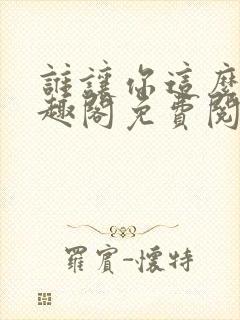 誰讓你這麼
趣閣免費閱
羅賓-懷特